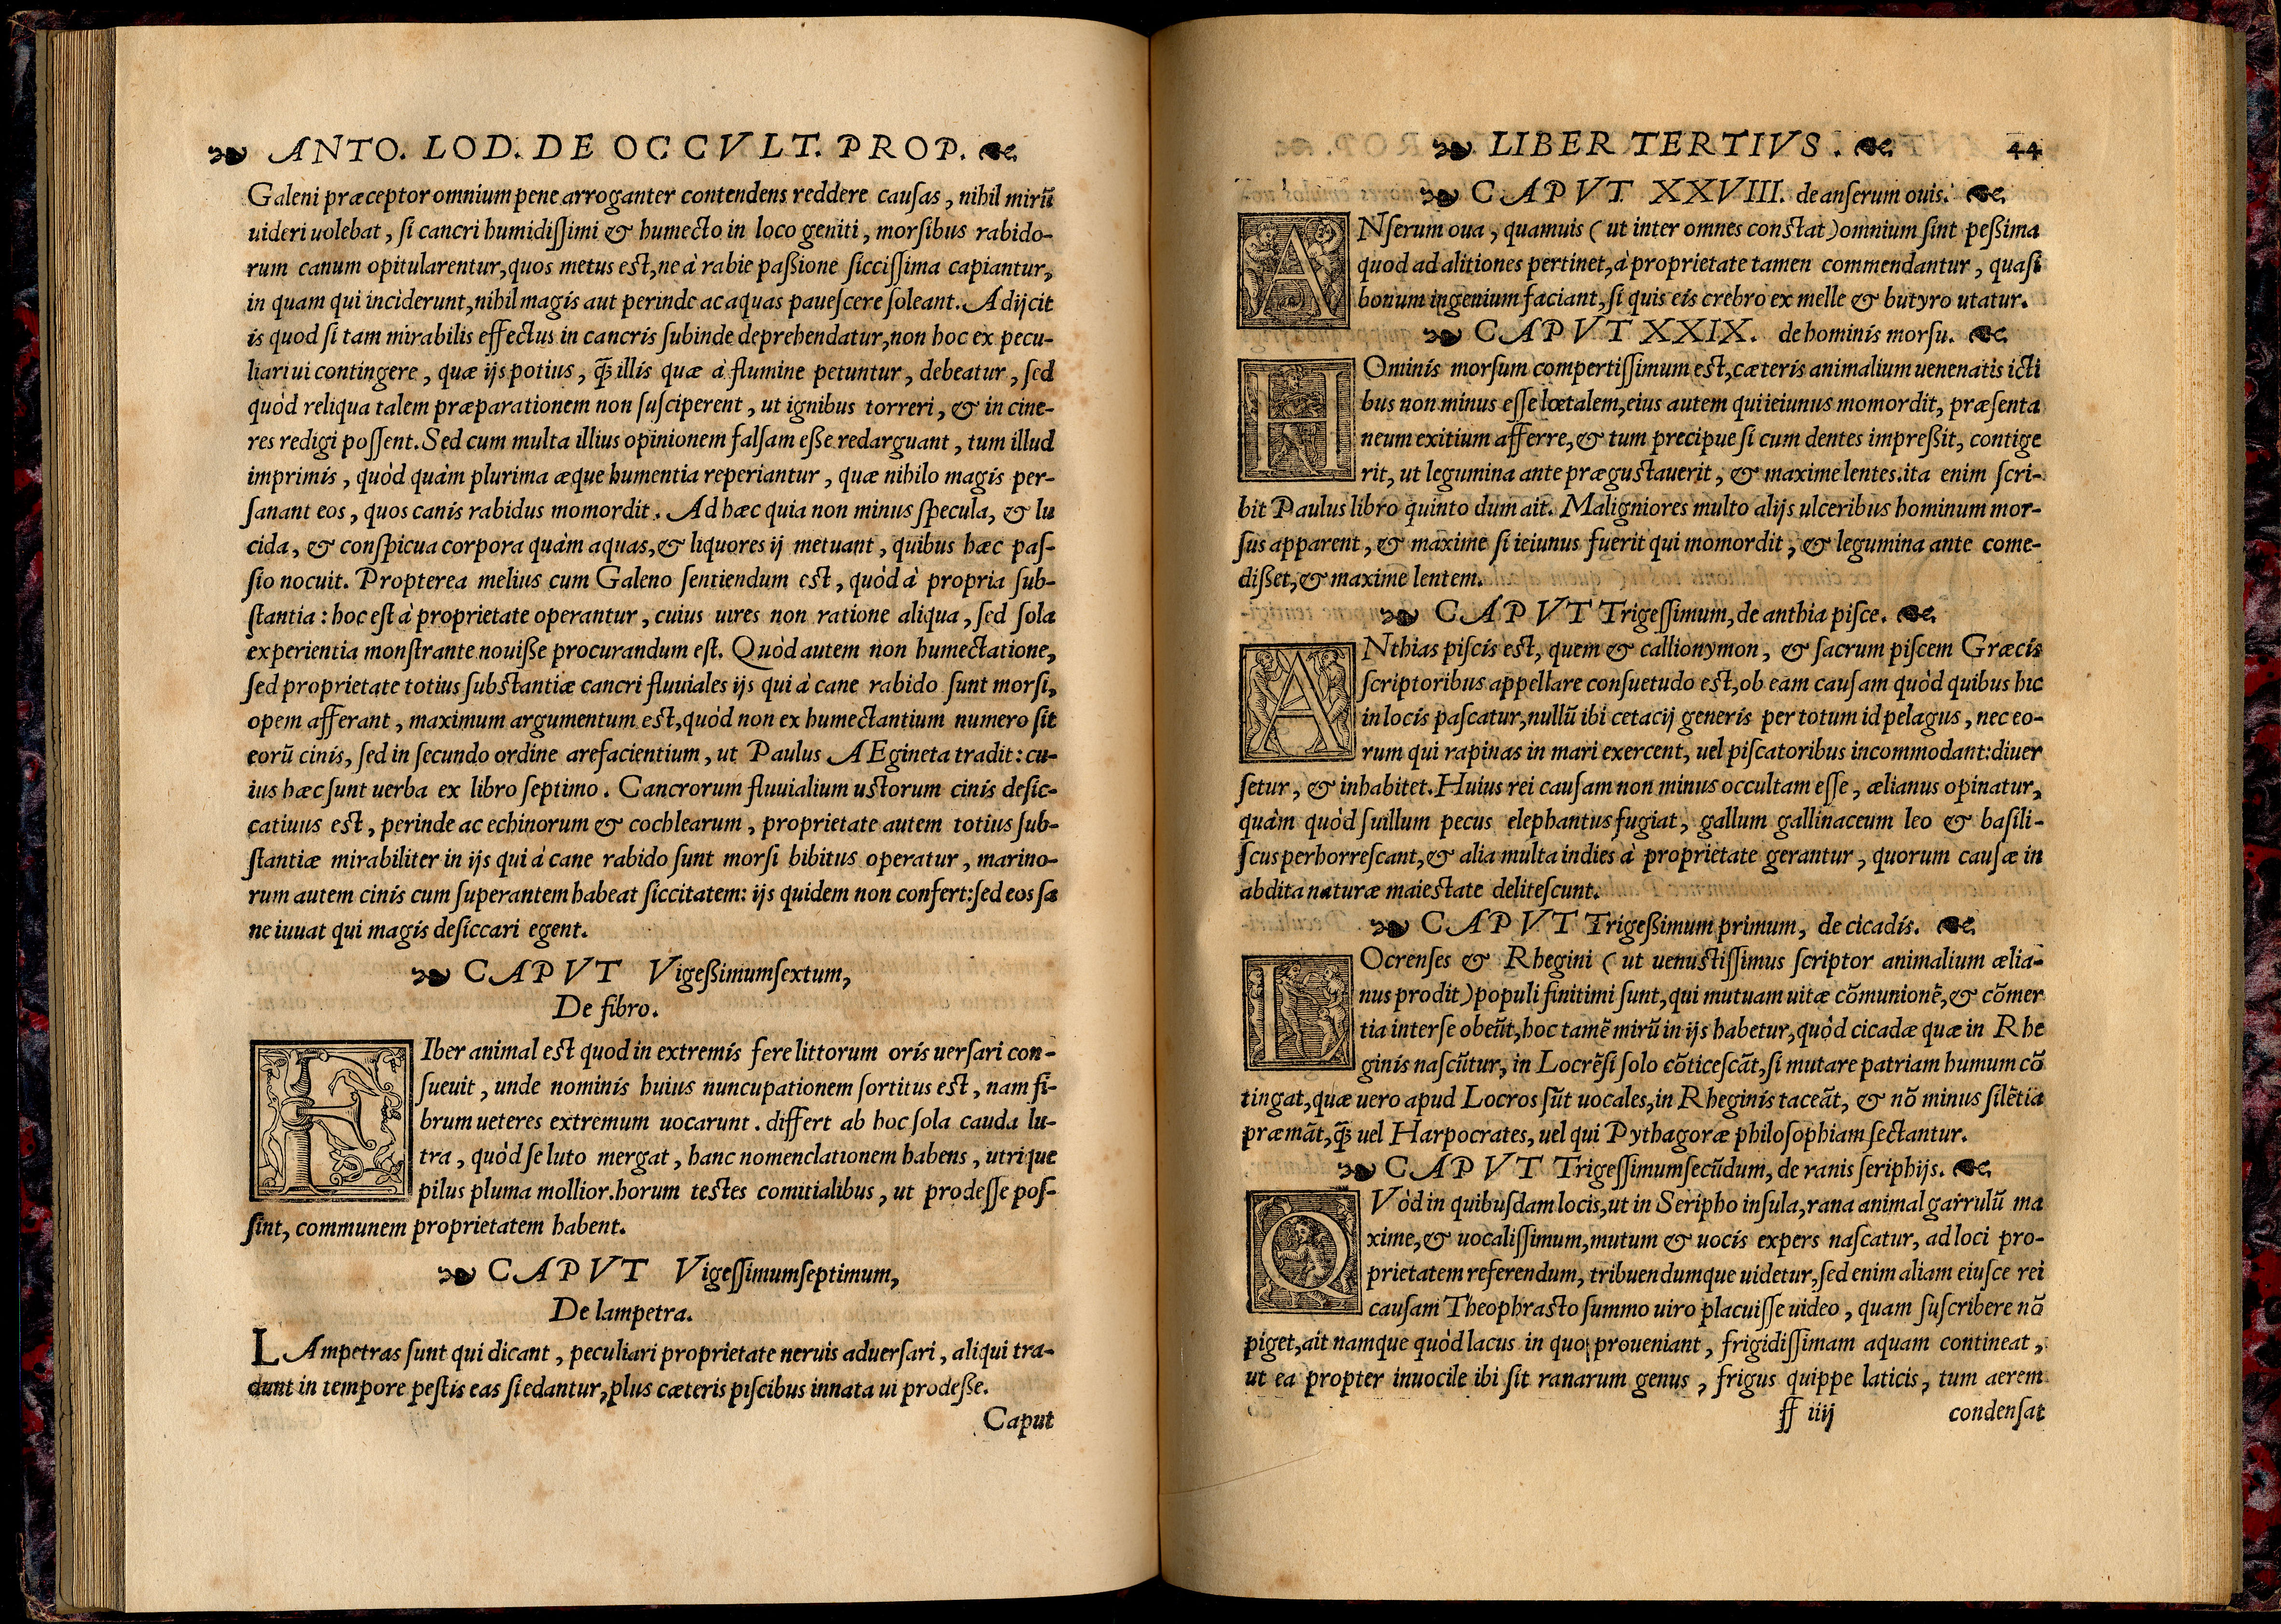 ANTO. LOD. DE OCCVLT. PROP.
Galeni præceptor omnium pene arroganter contendens reddere cauſas, nihil mirũ
uideri uolebat, ſi cancri humidiſſimi & humecto in loco geniti, morſibus rabido-
rum canum opitularentur, quos metus est, ne à rabie paßione ſicciſſima capiantur,
in quam qui inciderunt, nihil magis aut perinde ac aquas paueſcere ſoleant. Adijcit
is quod ſi tam mirabilis effectus in cancris ſubinde deprehendatur, non hoc ex pecu-
liari ui contingere, quæ ijs potius, q̃ȝ illis quæ à flumine petuntur, debeatur, ſed
quòd reliqua talem præparationem non ſuſciperent, ut ignibus torreri, & in cine-
res redigi poſſent. Sed cum multa illius opinionem falſam eße redarguant, tum illud
imprimis, quòd quàm plurima æque humentia reperiantur, quæ nihilo magis per-
ſanant eos, quos canis rabidus momordit. Ad hæc quia non minus ſpecula, & lu
cida, & conſpicua corpora quàm aquas, & liquores ij metuant, quibus hæc paſ-
ſio nocuit. Propterea melius cum Galeno ſentiendum est, quòd à propria ſub-
ſtantia: hoc eſt à proprietate operantur, cuius uires non ratione aliqua, ſed ſola
experientia monſtrante nouiße procurandum eſt. Quòd autem non humectatione,
ſed proprietate totius ſubstantiæ cancri fluuiales ijs qui à cane rabido ſunt morſi,
opem afferant, maximum argumentum est, quòd non ex humectantium numero ſit
eorũ cinis, ſed in ſecundo ordine arefacientium, ut Paulus AEgineta tradit: cu-
ius hæc ſunt uerba ex libro ſeptimo. Cancrorum fluuialium ustorum cinis deſic-
catiuus est, perinde ac echinorum & cochlearum, proprietate autem totius ſub-
ſtantiæ mirabiliter in ijs qui à cane rabido ſunt morſi bibitus operatur, marino-
rum autem cinis cum ſuperantem habeat ſiccitatem: ijs quidem non confert: ſed eos ſa
ne iuuat qui magis deſiccari egent.
CAPVT Vigeßimumſextum,
De fibro.
FIber animal est quod in extremis fere littorum oris uerſari con-
ſueuit, unde nominis huius nuncupationem ſortitus est, nam fi-
brum ueteres extremum uocarunt. differt ab hoc ſola cauda lu-
tra, quòd ſe luto mergat, hanc nomenclationem habens, utrique
pilus pluma mollior. horum testes comitialibus, ut prodeſſe poſ-
ſint, communem proprietatem habent.
CAPVT Vigeſſimumſeptimum,
De lampetra.
LAmpetras ſunt qui dicant, peculiari proprietate neruis aduerſari, aliqui tra-
dunt in tempore peſtis eas ſi edantur, plus cæteris piſcibus innata ui prodeße.
Caput
LIBER TERTIVS. 44
CAPVT XXVIII. de anſerum ouis.
ANſerum oua, quamuis (ut inter omnes constat) omnium ſint peßima
quod ad alitiones pertinet, à proprietate tamen commendantur, quaſi
bonum ingenium faciant, ſi quis eis crebro ex melle & butyro utatur.
CAPVT XXIX. de hominis morſu.
HOminis morſum compertiſſimum est, cæteris animalium uenenatis icti
bus non minus eſſe lœtalem, eius autem qui ieiunus momordit, præſenta
neum exitium afferre, & tum precipue ſi cum dentes impreßit, contige
rit, ut legumina ante prægustauerit, & maxime lentes. ita enim ſcri-
bit Paulus libro quinto dum ait. Maligniores multo alijs ulceribus hominum mor-
ſus apparent, & maxime ſi ieiunus fuerit qui momordit, & legumina ante come-
dißet, & maxime lentem.
CAPVT Trigeſſimum, de anthia piſce.
ANthias piſcis est, quem & callionymon, & ſacrum piſcem Græcis
ſcriptoribus appellare conſuetudo est, ob eam cauſam quòd quibus hic
in locis paſcatur, nullũ ibi cetacij generis per totum id pelagus, nec eo-
rum qui rapinas in mari exercent, uel piſcatoribus incommodant: diuer
ſetur, & inhabitet. Huius rei cauſam non minus occultam eſſe, ælianus opinatur,
quàm quòd ſuillum pecus elephantus fugiat, gallum gallinaceum leo & baſili-
ſcus perhorreſcant, & alia multa indies à proprietate gerantur, quorum cauſæ in
abdita naturæ maiestate deliteſcunt.
CAPVT Trigeßimum primum, de cicadis.
LOcrenſes & Rhegini (ut uenustiſſimus ſcriptor animalium ælia-
nus prodit) populi finitimi ſunt, qui mutuam uitæ cõmunionẽ, & cõmer
tia inter ſe obeũt, hoc tamẽ mirũ in ijs habetur, quòd cicadæ quæ in Rhe
ginis naſcũtur, in Locrẽſi ſolo cõticeſcãt, ſi mutare patriam humum cõ
tingat, quæ uero apud Locros ſũt uocales, in Rheginis taceãt, & nõ minus ſilẽtia
præmãt, q̃ȝ uel Harpocrates, uel qui Pythagoræ philoſophiam ſectantur.
CAPVT Trigeſſimumſecũdum, de ranis ſeriphijs.
QVòd in quibuſdam locis, ut in Seripho inſula, rana animal garrulũ ma
xime, & uocaliſſimum, mutum & uocis expers naſcatur, ad loci pro-
prietatem referendum, tribuendumque uidetur, ſed enim aliam eiuſce rei
cauſam Theophrasto ſummo uiro placuiſſe uideo, quam ſuſcribere nõ
piget, ait namque quòd lacus in quo proueniant, frigidiſſimam aquam contineat,
ut ea propter inuocile ibi ſit ranarum genus, frigus quippe laticis, tum aerem
ff iiij condenſat